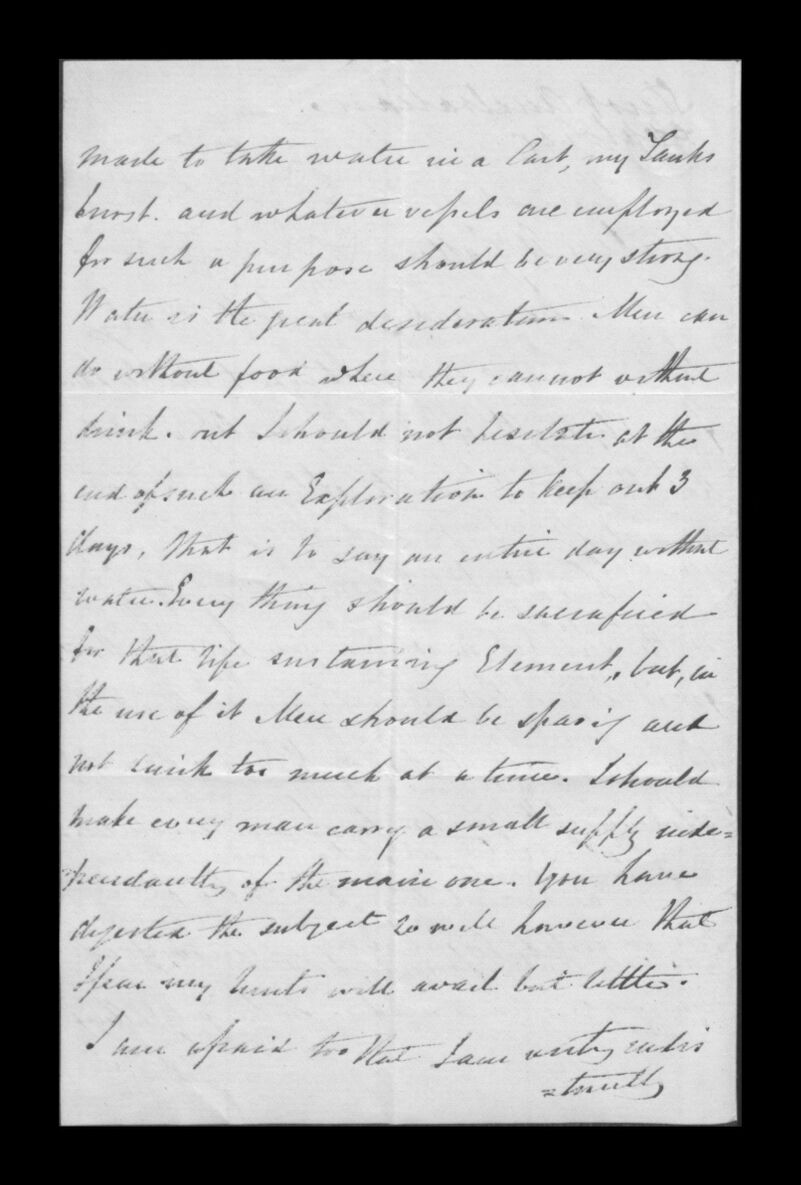 made to take water in a Cart, my Tanks
burst. and whatever vessels are employed
for such a purpose should be very strong.
Water is the great desideratum Men can
do without food where they cannot without
drink. but I should not hesitate at the
end of such an Exploration to keep out 3
days, that is to say an entire day without
water. Every thing should be sacrafised
for that life sustaining Element, but, in
the use of it Men should be sparing and
not drink too much at a time. I should
make every man carry a small supply inde=
pendantly of the main one. You have
digested the subject so well however that
I fear my hints will avail but little.
I am afraid too that I am writing indis
=tinctly